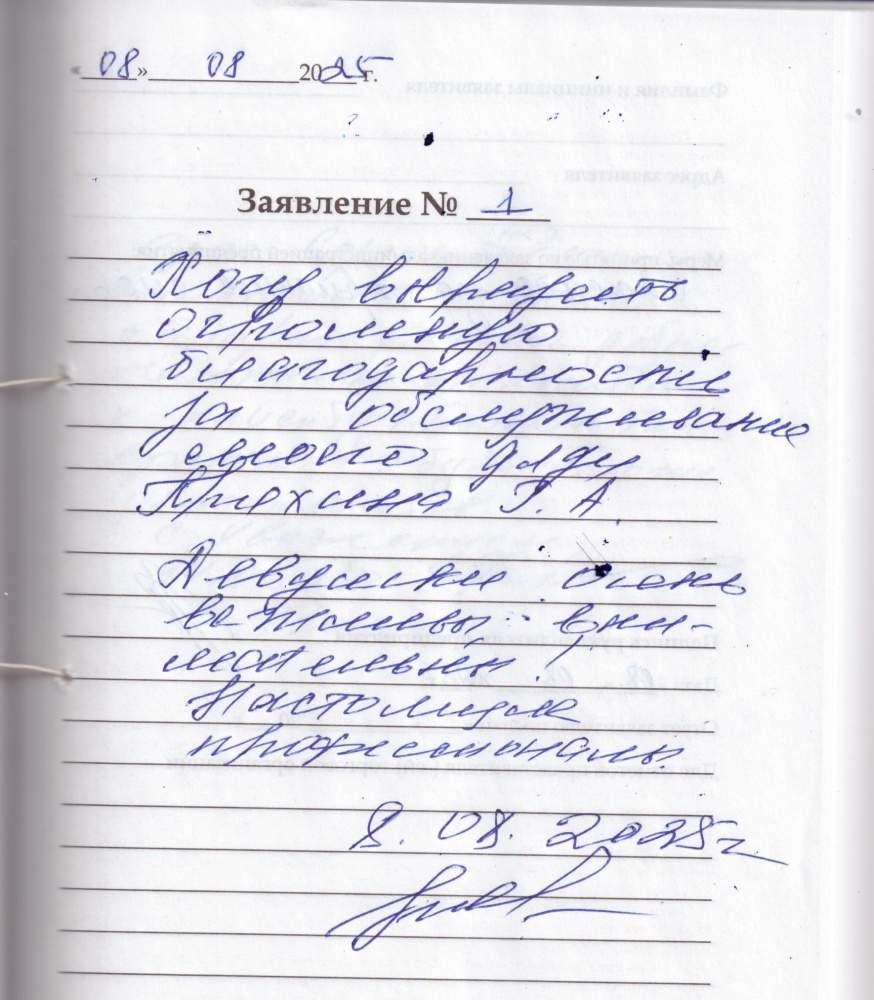 «08» 08 2025 г.
Заявление № 1
Хочу выразить
огромную
благодарность
за обслуживание
своего дяди
Г. А.
Девушки очень
вежливы, вни-
мательны,
Настоящие
профессионалы.
8. 08. 2025г.